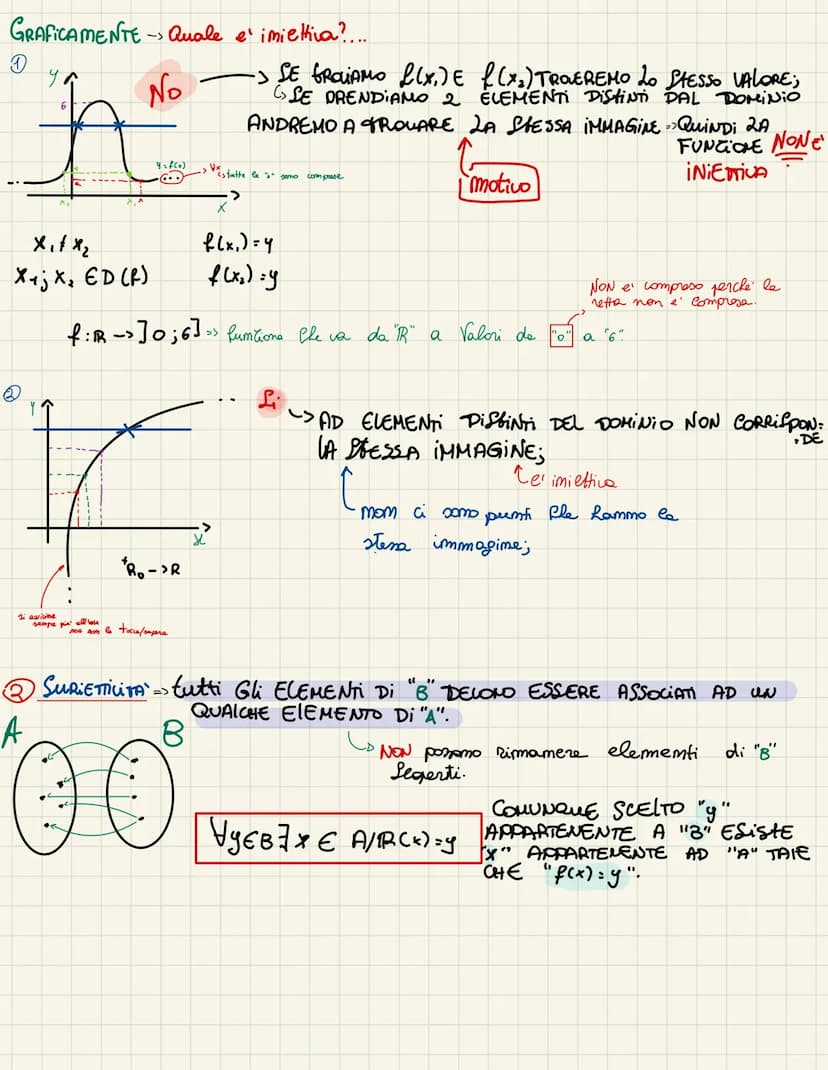 GRAFICAMENTE -> Quale e' iniettiva?...
①
y
No
-> SE TROVIAMO f(x₁) E f(x₂) TROVEREMO LO STESSO VALORE;
SE PRENDIAMO 2 ELEMENTI DISTINTI DAL DOMINIO
ANDREMO A TROVARE LA STESSA IMMAGINE => QUINDI LA
FUNZIONE NON E'
INIETTIVA
motivo
6
y=f(x)
x
x₁ ≠ x₂
x₁; x₂ ∈ D(f)
f(x₁)=y
f(x₂)=y
NON e' compreso perche' la
retta non e' compresa.
f:R->]0;6] => funzione che va da "R" a Valori da "0" a "6".
②
y
Si
-> AD ELEMENTI DISTINTI DEL DOMINIO NON CORRISPON=
DE
LA STESSA IMMAGINE;
e' iniettiva
non ci sono punti che hanno la
stessa immagine;
x
⁺R₀->R
si avvicina
sempre piu' all'asse
ma non lo tocca/supera
② SURIETTIVITA' => tutti Gli ELEMENTI Di "B" DEVONO ESSERE ASSOCIATI AD UN
QUALCHE ELEMENTO Di "A".
A
B
NON possono rimanere elementi di "B"
∀y∈B∃x ∈ A/f(x)=y
COMUNQUE SCELTO "y"
APPARTENENTE A "B" ESISTE
"x" APPARTENENTE AD "A" TALE
CHE "f(x)=y".